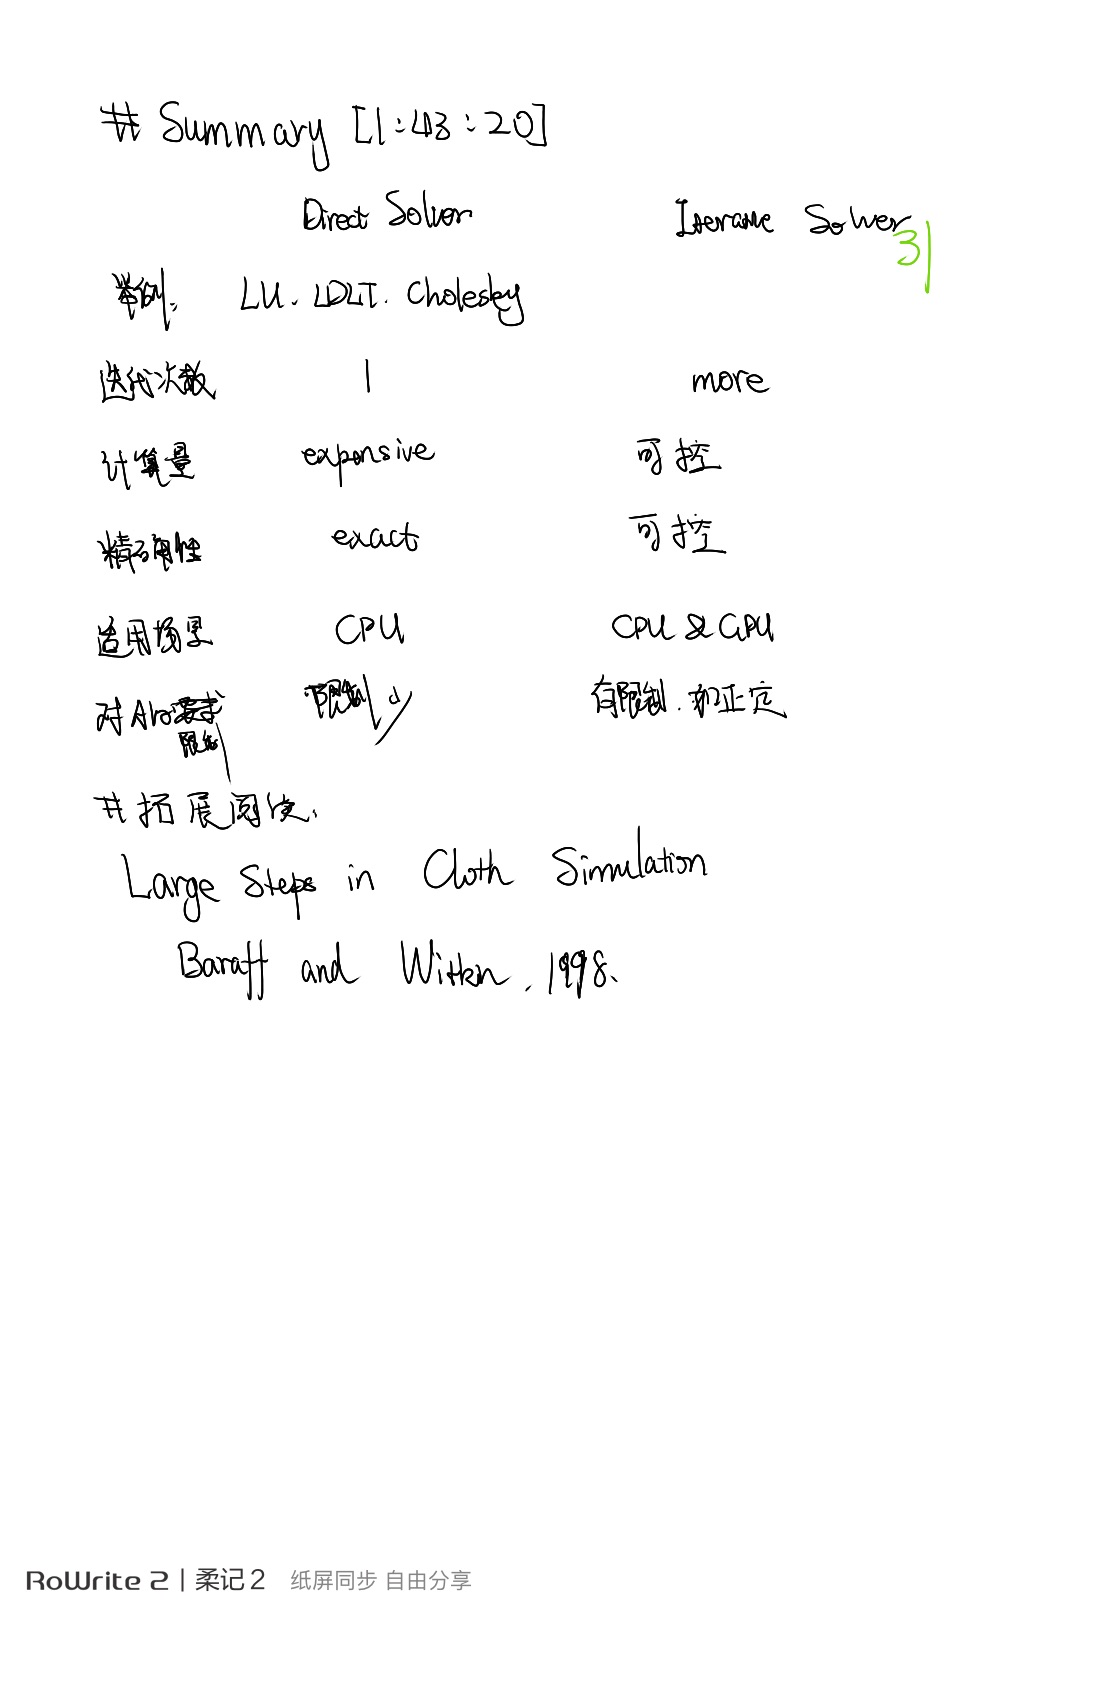 # Summary [1:43:20]
Direct Solver Iterative Solver
31
举例: LU. LDLT. Cholesky
迭代次数 1 more
计算量 expensive 可控
精确性 exact 可控
适用场景 CPU CPU & GPU
对A 要求 限制小 有限制. 如正定
限制
# 拓展阅读.
Large Steps in Cloth Simulation
Baraff and Witkin, 1998.
RoWrite 2 | 柔记2 纸屏同步 自由分享